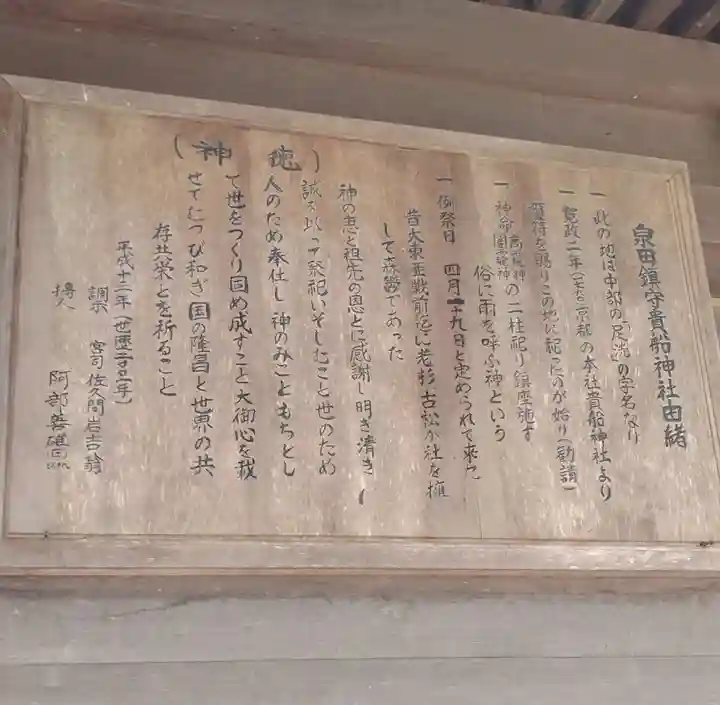 泉田鎮守貴船神社由緒
一 此の地は中部の(足洗)の字名なり
一 寛政二年 京都の本社貴船神社より
賢符を賜りこの地に祀ったのが始り(勧請)
一 神命 高龗神 闇龗神 の二柱祀り鎮座施す
俗に雨を呼ぶ神という
一 例祭日 四月十九日と定められて来た
昔大東亜戦前迄に老杉、古松が社を擁
して森厳であった
(神 徳)
神の恵と祖先の恩とに感謝し明き清き
誠を以って祭祀いそしむこと世のため
人のため奉仕し神のみこともちとし
て世をつくり固め成すこと大御心を戴
せてむつび和ぎ国の隆昌と世界の共
存共栄とを祈ること
平成十二年
宮司 佐久間岩吉 翁
阿部善雄